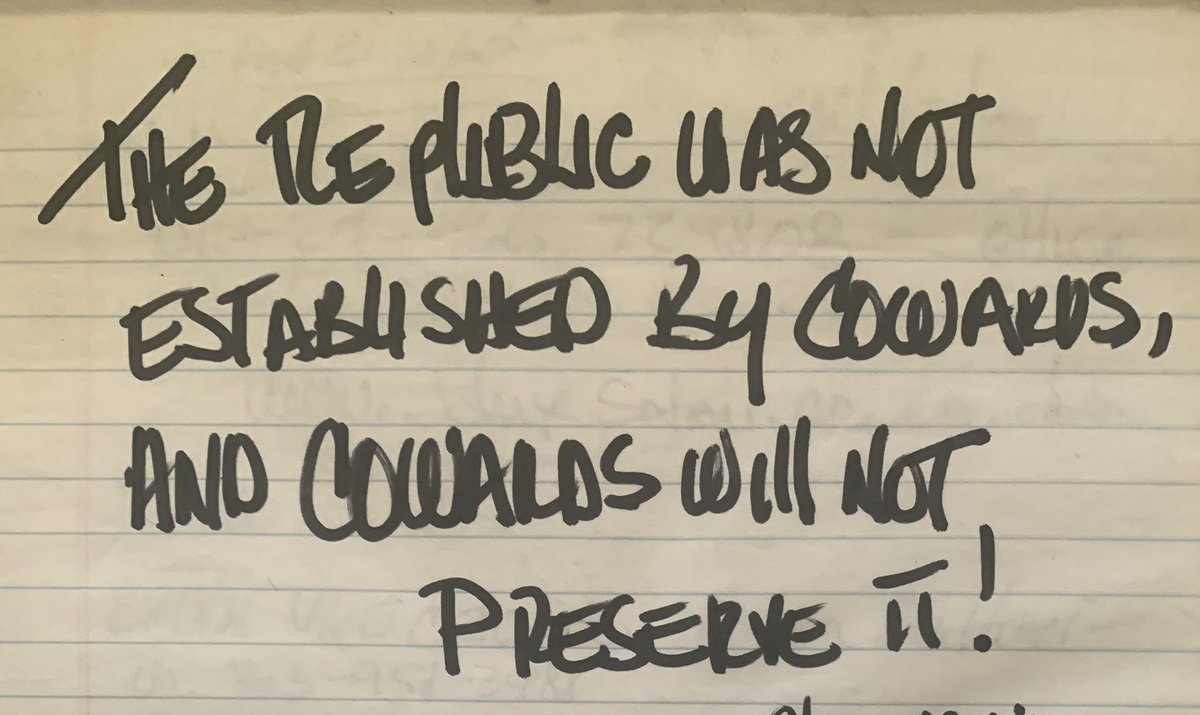 THE REPUBLIC WAS NOT
ESTABLISHED BY COWARDS,
AND COWARDS WILL NOT
PRESERVE IT!